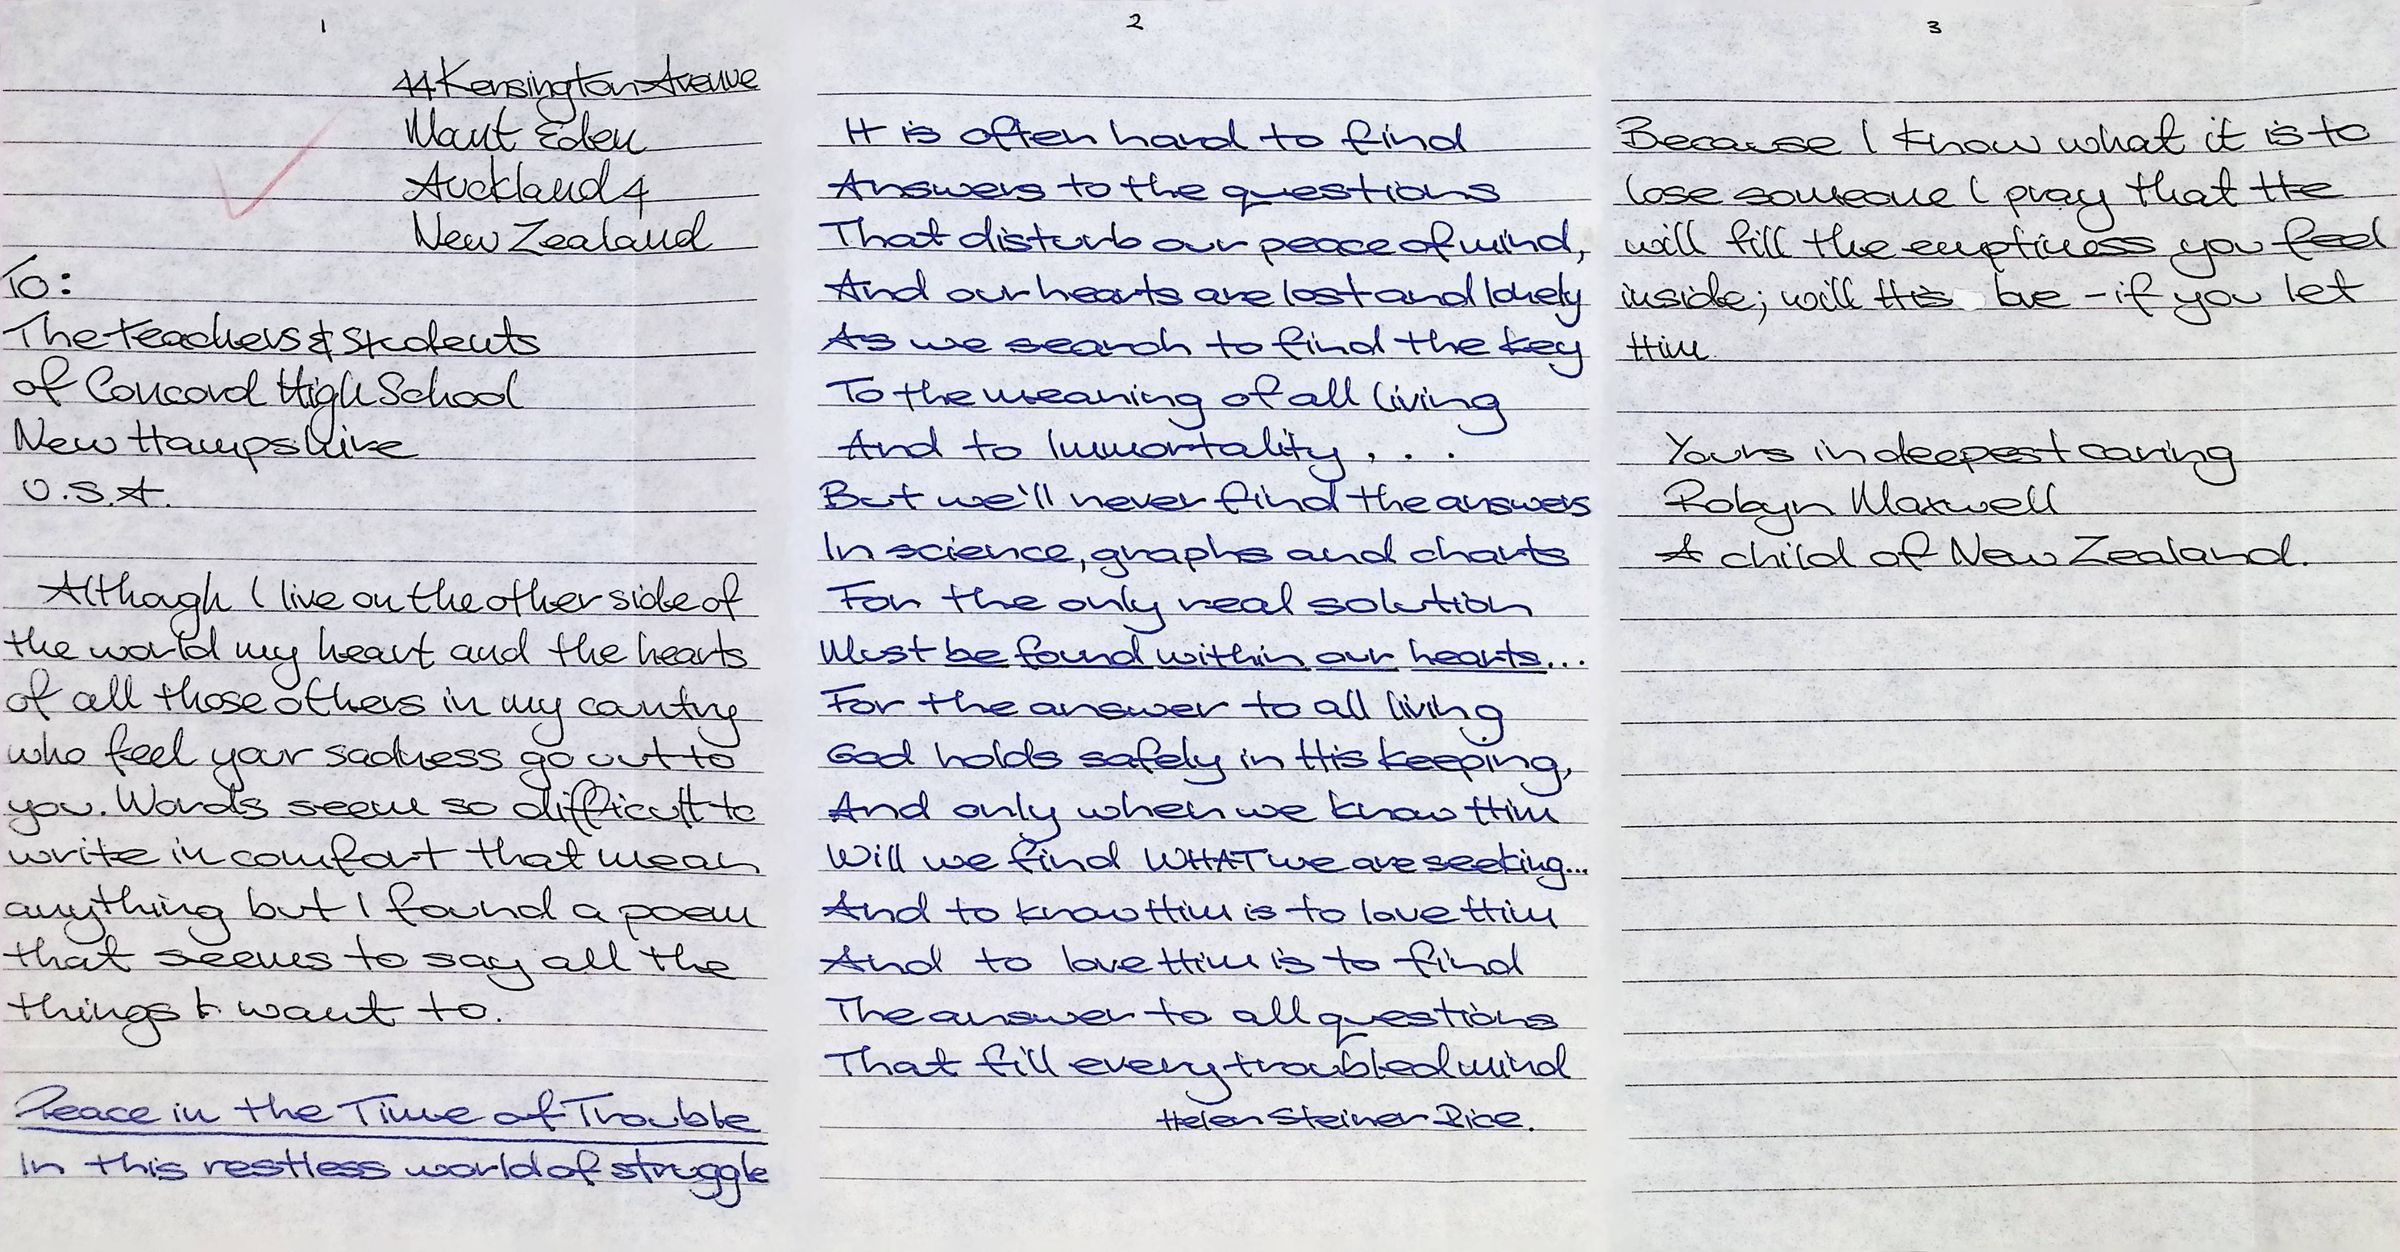 1
44 Kensington Avenue
Mount Eden
Auckland 4
New Zealand
To:
The teachers & students
of Concord High School
New Hampshire
U.S.A.
Although I live on the other side of
the world my heart and the hearts
of all those others in my country
who feel your sadness go out to
you. Words seem so difficult to
write in comfort that mean
anything but I found a poem
that seems to say all the
things I want to.
Peace in the Time of Trouble
In this restless world of struggle
2
It is often hard to find
Answers to the questions
That disturb our peace of mind,
And our hearts are lost and lonely
As we search to find the key
To the meaning of all living
And to Immortality . . .
But we'll never find the answers
In science, graphs and charts
For the only real solution
Must be found within our hearts...
For the answer to all living
God holds safely in His keeping,
And only when we know Him
Will we find WHAT we are seeking...
And to know Him is to love Him
And to love Him is to find
The answer to all questions
That fill every troubled mind
Helen Steiner Rice.
3
Because I know what it is to
lose someone I pray that He
will fill the emptiness you feel
inside; will His love - if you let
Him
Yours in deepest caring
Robyn Maxwell
A child of New Zealand.